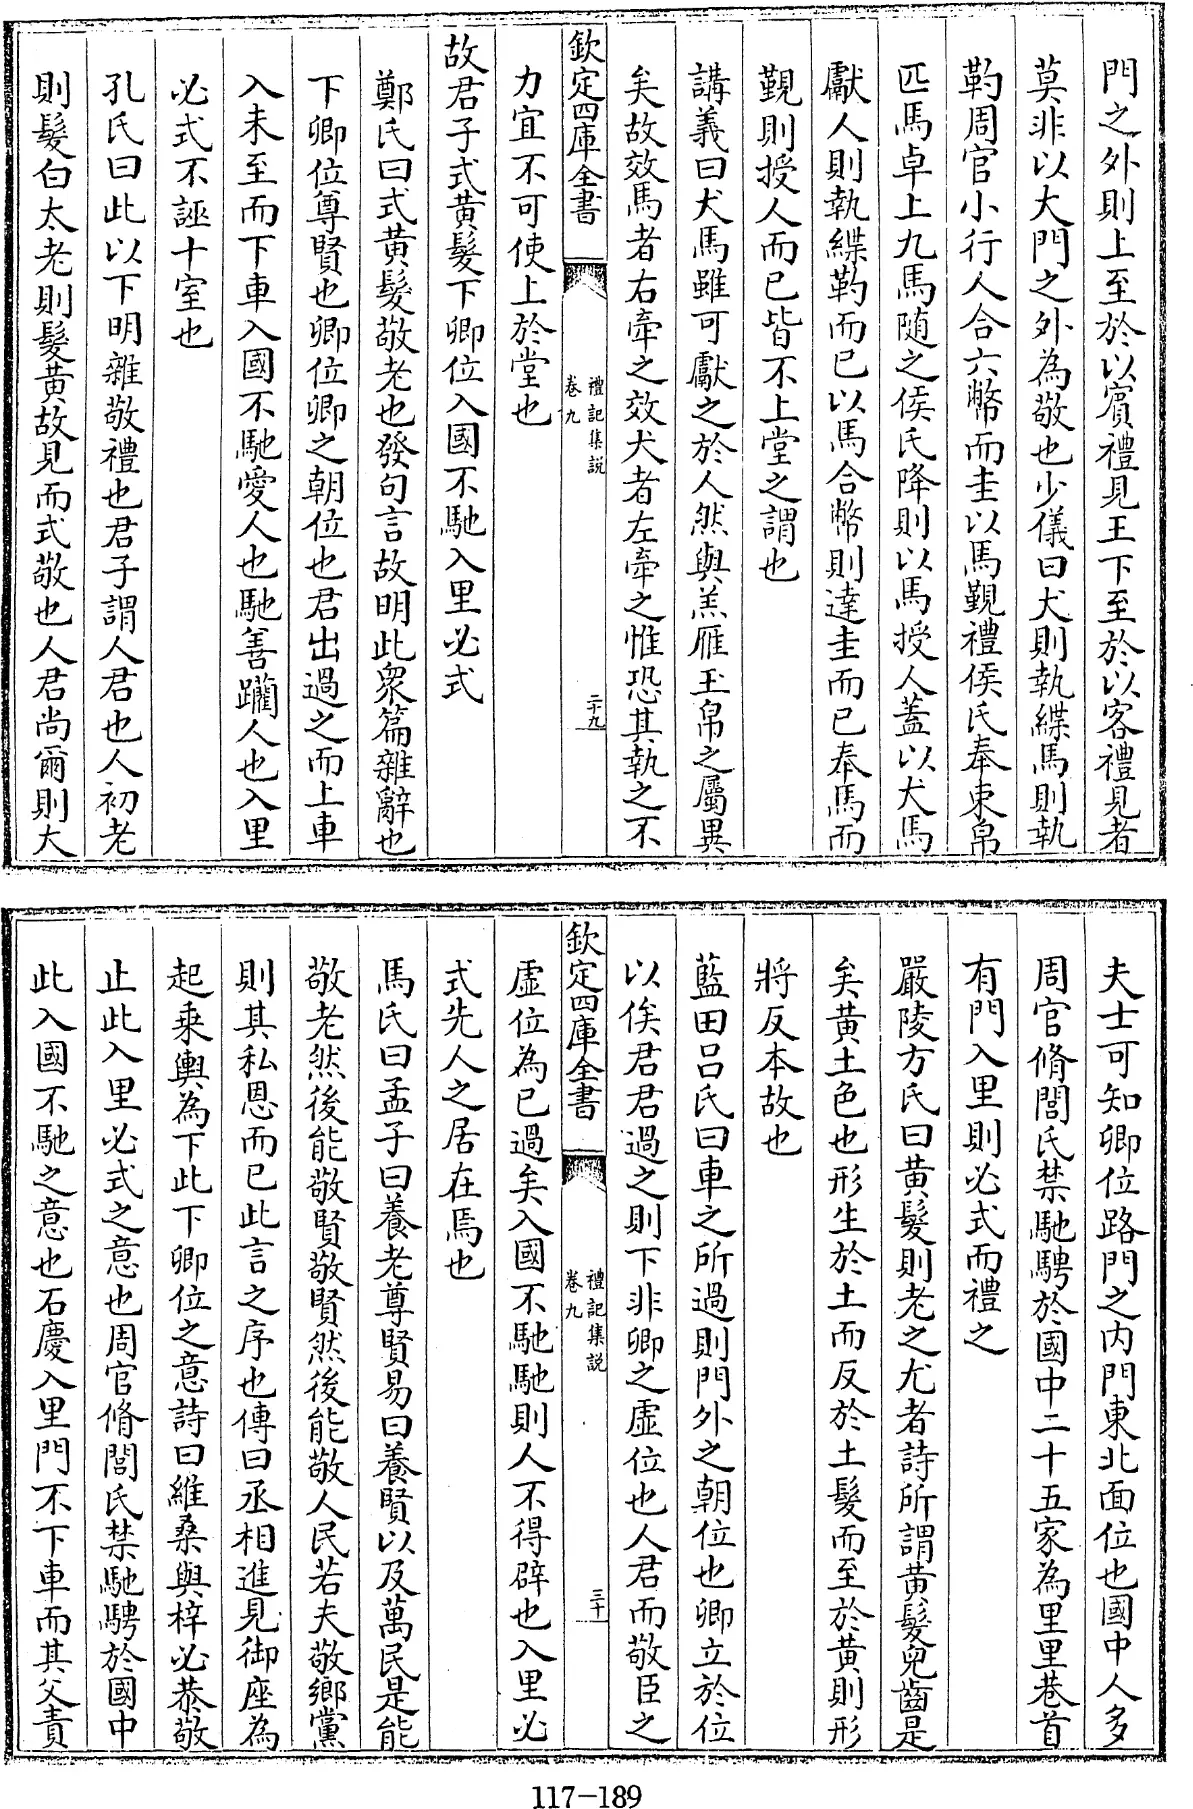 門之外則上至於以賓禮見王下至於以客禮見者
莫非以大門之外為敬也少儀曰犬則執緤馬則執
靮周官小行人合六幣而圭以馬覲禮侯氏奉束帛
匹馬卓上九馬随之侯氏降則以馬授人蓋以犬馬
獻人則執緤靮而已以馬合幣則達圭而已奉馬而
覲則授人而已皆不上堂之謂也
講義曰犬馬雖可獻之於人然與羔雁玉帛之屬異
矣故效馬者右牽之效犬者左牽之惟恐其執之不
欽定四庫全書
禮記集説
卷九
二十九
力宜不可使上於堂也
故君子式黄髮下卿位入國不馳入里必式
鄭氏曰式黄髮敬老也發句言故明此衆篇雜辭也
下卿位尊賢也卿位卿之朝位也君出過之而上車
入未至而下車入國不馳愛人也馳善躪人也入里
必式不誣十室也
孔氏曰此以下明雜敬禮也君子謂人君也人初老
則髮白太老則髮黄故見而式敬也人君尚爾則大
夫士可知卿位路門之内門東北面位也國中人多
周官脩閭氏禁馳騁於國中二十五家為里里巷首
有門入里則必式而禮之
嚴陵方氏曰黄髮則老之尤者詩所謂黄髮兒齒是
矣黄土色也形生於土而反於土髮而至於黄則形
將反本故也
藍田吕氏曰車之所過則門外之朝位也卿立於位
以俟君君過之則下非卿之虚位也人君而敬臣之
欽定四庫全書
禮記集説
卷九
三十
虚位為已過矣入國不馳馳則人不得辟也入里必
式先人之居在焉也
馬氏曰孟子曰養老尊賢易曰養賢以及萬民是能
敬老然後能敬賢敬賢然後能敬人民若夫敬鄉黨
則其私恩而已此言之序也傳曰丞相進見御座為
起乘輿為下此下卿位之意詩曰維桑與梓必恭敬
止此入里必式之意也周官脩閭氏禁馳騁於國中
此入國不馳之意也石慶入里門不下車而其父責
117-189